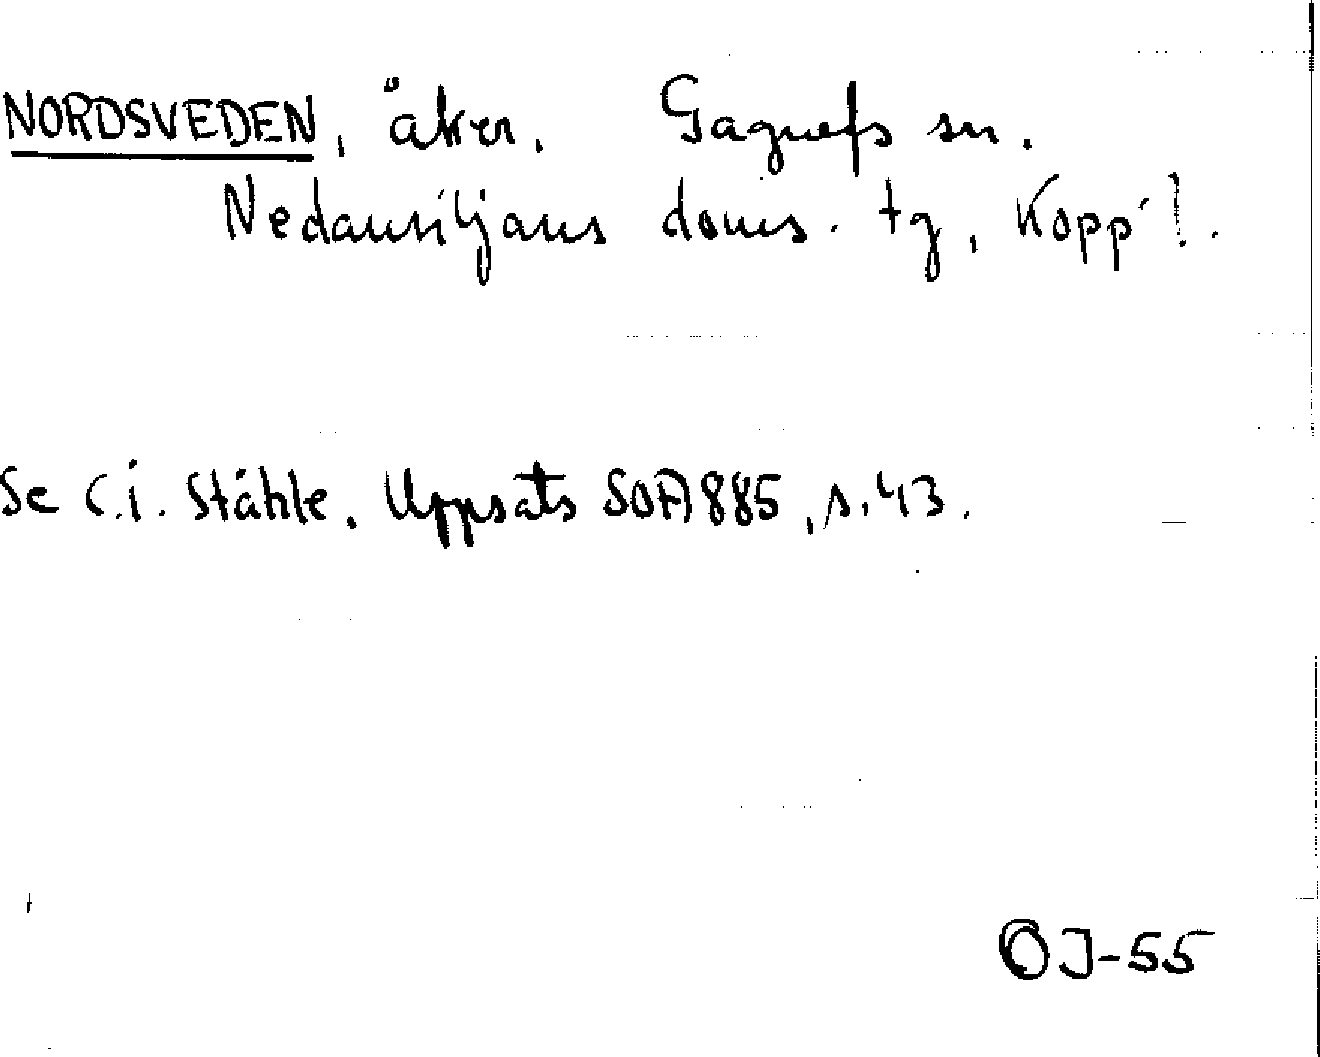 NORDSVEDEN, åker. Gagnefs sn.
Nedansiljans doms. tg, Kopp. l.
Se C.I. Ståhle, Uppsats SOFA 885, s. 43.
OJ-55